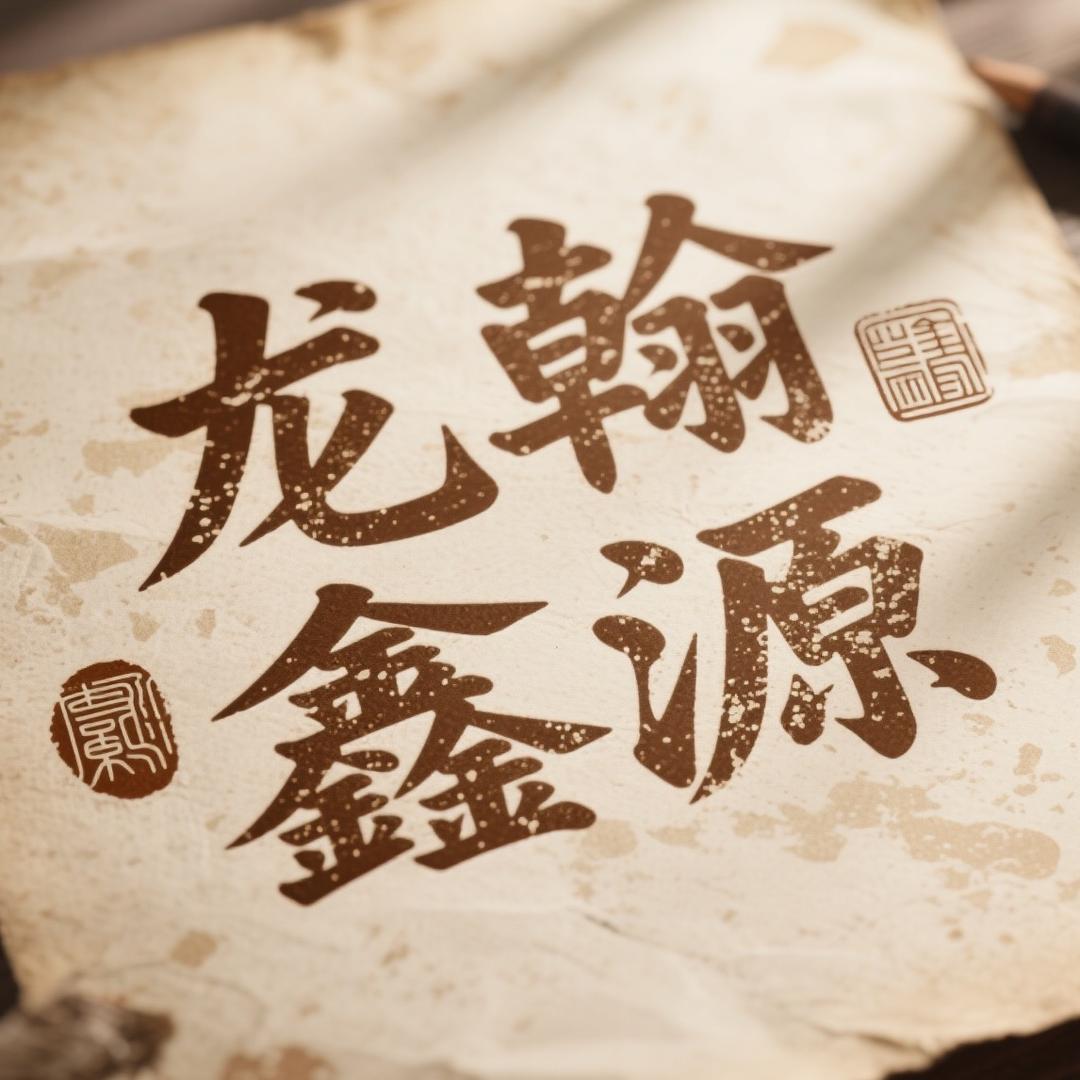 龙翰
鑫源